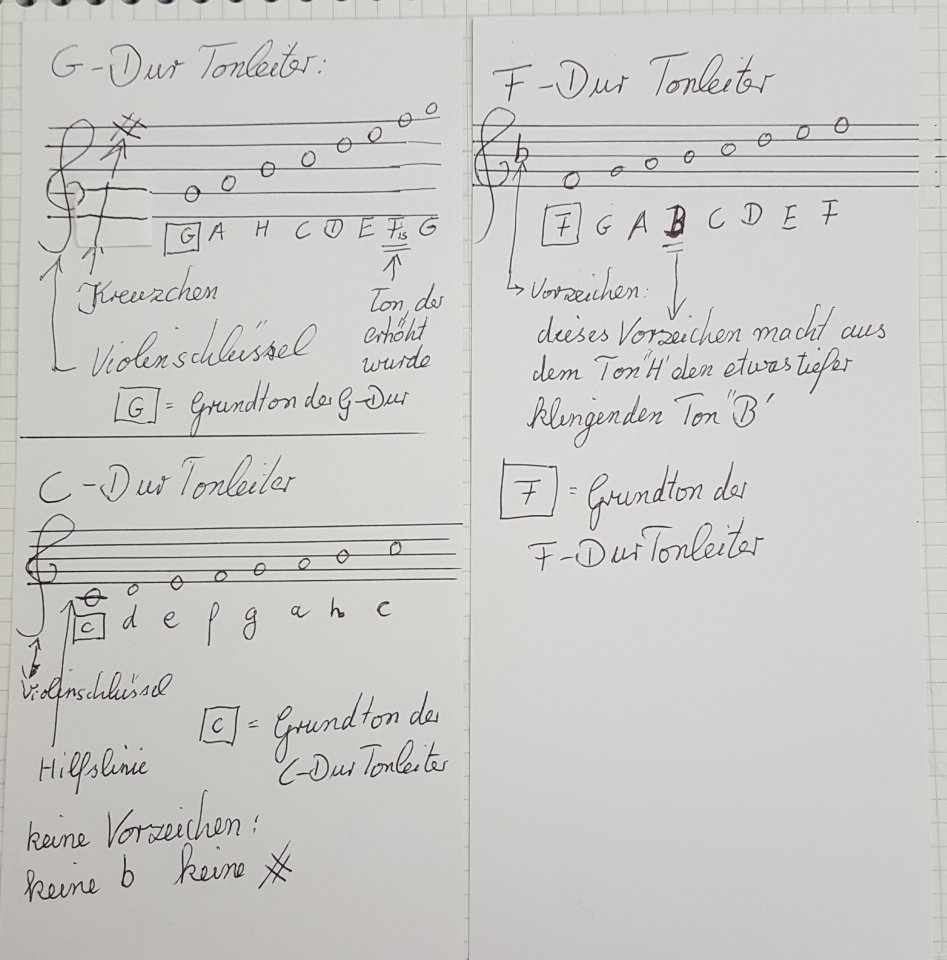 G-Dur Tonleiter:
G A H C D E Fis G
Kreuzchen
Ton, der
erhöht
wurde
Violinschlüssel
G = Grundton der G-Dur
C-Dur Tonleiter
c d e f g a h c
Violinschlüssel
C = Grundton der
C-Dur Tonleiter
Hilfslinie
keine Vorzeichen:
keine b keine #
F-Dur Tonleiter
b
F G A B C D E F
Vorzeichen:
dieses Vorzeichen macht aus
dem Ton "H" den etwas tiefer
klingenden Ton "B"
F = Grundton der
F-Dur Tonleiter